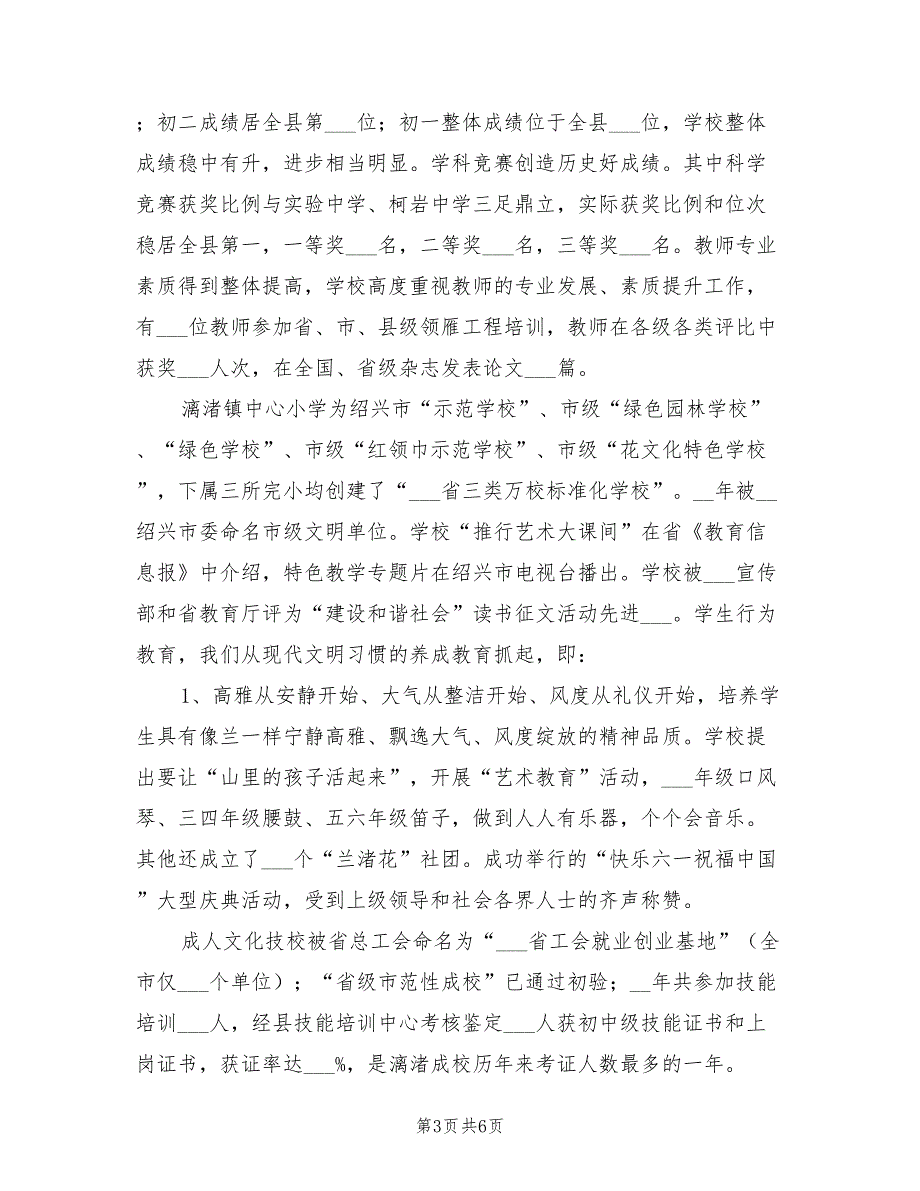 ；初二成绩居全县第___位；初一整体成绩位于全县___位，学校整体
成绩稳中有升，进步相当明显。学科竞赛创造历史好成绩。其中科学
竞赛获奖比例与实验中学、柯岩中学三足鼎立，实际获奖比例和位次
稳居全县第一，一等奖___名，二等奖___名，三等奖___名。教师专业
素质得到整体提高，学校高度重视教师的专业发展、素质提升工作，
有___位教师参加省、市、县级领雁工程培训，教师在各级各类评比中
获奖___人次，在全国、省级杂志发表论文___篇。
漓渚镇中心小学为绍兴市“示范学校”、市级“绿色园林学校”
、“绿色学校”、市级“红领巾示范学校”、市级“花文化特色学校
”，下属三所完小均创建了“___省三类万校标准化学校”。__年被__
绍兴市委命名市级文明单位。学校“推行艺术大课间”在省《教育信
息报》中介绍，特色教学专题片在绍兴市电视台播出。学校被___宣传
部和省教育厅评为“建设和谐社会”读书征文活动先进___。学生行为
教育，我们从现代文明习惯的养成教育抓起，即：
1、高雅从安静开始、大气从整洁开始、风度从礼仪开始，培养学
生具有像兰一样宁静高雅、飘逸大气、风度绽放的精神品质。学校提
出要让“山里的孩子活起来”，开展“艺术教育”活动，___年级口风
琴、三四年级腰鼓、五六年级笛子，做到人人有乐器，个个会音乐。
其他还成立了___个“兰渚花”社团。成功举行的“快乐六一祝福中国
”大型庆典活动，受到上级领导和社会各界人士的齐声称赞。
成人文化技校被省总工会命名为“___省工会就业创业基地”（全
市仅___个单位）；“省级市范性成校”已通过初验；__年共参加技能
培训___人，经县技能培训中心考核鉴定___人获初中级技能证书和上
岗证书，获证率达___%，是漓渚成校历年来考证人数最多的一年。
第3页共6页